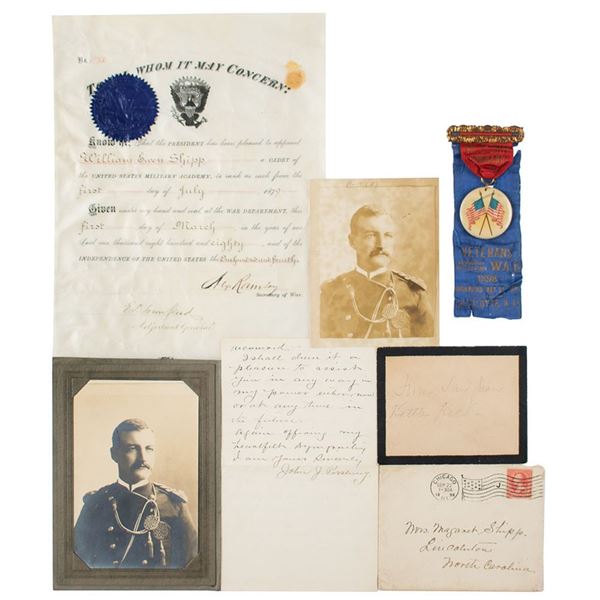 No.
TO WHOM IT MAY CONCERN:
Know Ye, That the PRESIDENT has been pleased to appoint
William Ewen Shipp a CADET of
the UNITED STATES MILITARY ACADEMY, to rank as such from the
first day of July 1879
Given under my hand and seal at the WAR DEPARTMENT, this
first day of March in the year of our
Lord one thousand eight hundred and eighty, and of the
INDEPENDENCE OF THE UNITED STATES the One hundred and fourth.
Alex Ramsey
Secretary of War.
E. D. Townsend
Adjutant General
VETERANS
WAR
1898
I shall deem it a
pleasure to assist
you in any way in
my power either now
or at any time in
the future.
Again offering my
heartfelt sympathies
I am Yours Sincerely
John J Pershing
from San Juan
Battle field
CHICAGO
Mrs. Magaret Shipp.
Lincolnton
North Carolina.